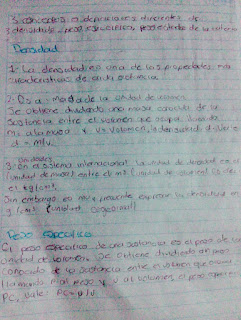 3 conceptos o definiciones diferentes de
densidad, peso especifico,
Densidad
1- La densidad es una de las propiedades más
características de cada sustancia
2- Es la masa de la unidad de volumen
Se obtiene dividiendo una masa conocida de la
sustancia entre el volumen que ocupa llamando
m a la masa y v volumen, la densidad
d = m/v
Unidades
3- En el sistema internacional la unidad de densidad es
(unidad de masa) entre el m³ (unidad de volumen) es
el kg/m³
Sin embargo es muy frecuente expresar la densidad en
g/cm³ (unidad cegesimal)
Peso Especifico
El peso especifico de una sustancia es el peso de la
unidad de volumen. Se obtiene dividiendo un peso
conocido de la sustancia entre el volumen que ocupa
llamando p al peso y v al volumen, el peso especifico
PC, vale: PC = p/v